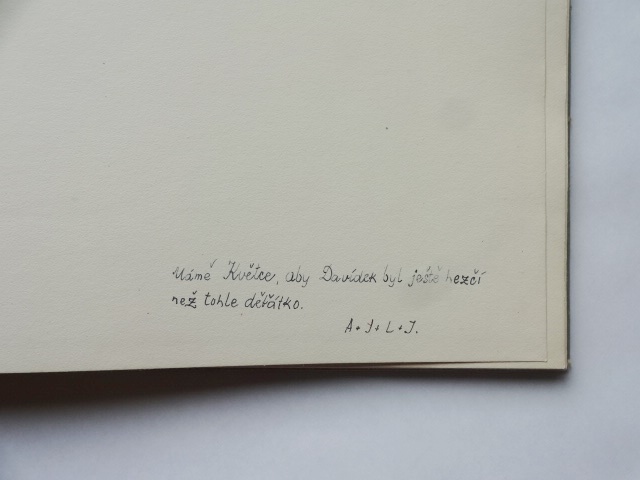 Mámě Květce, aby Davídek byl ještě hezčí
než tohle děťátko.
A + J + L + J.